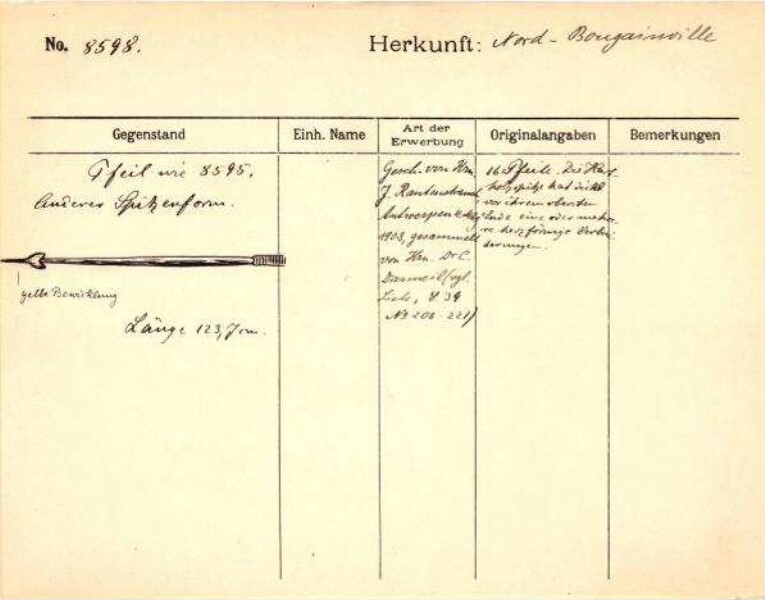 No. 8598.
Herkunft: Nord-Bougainville
Gegenstand
Einh. Name
Art der Erwerbung
Originalangaben
Bemerkungen
Pfeil wie 8595.
Anderes Spitzenform.
gelbe Bewicklung
Länge 123,7 cm.
Gesch. von Hrn.
J. Rautenstrauch
Antwerpen
1903, gesammelt
von Hrn. Dr C.
(vgl.
Liste, S 34
No 208-221)
16 Pfeile. Die Hart-
holzspitze hat dicht
vor ihrem obersten
Ende eine oder mehre-
re herzförmige Verbrei-
terungen.